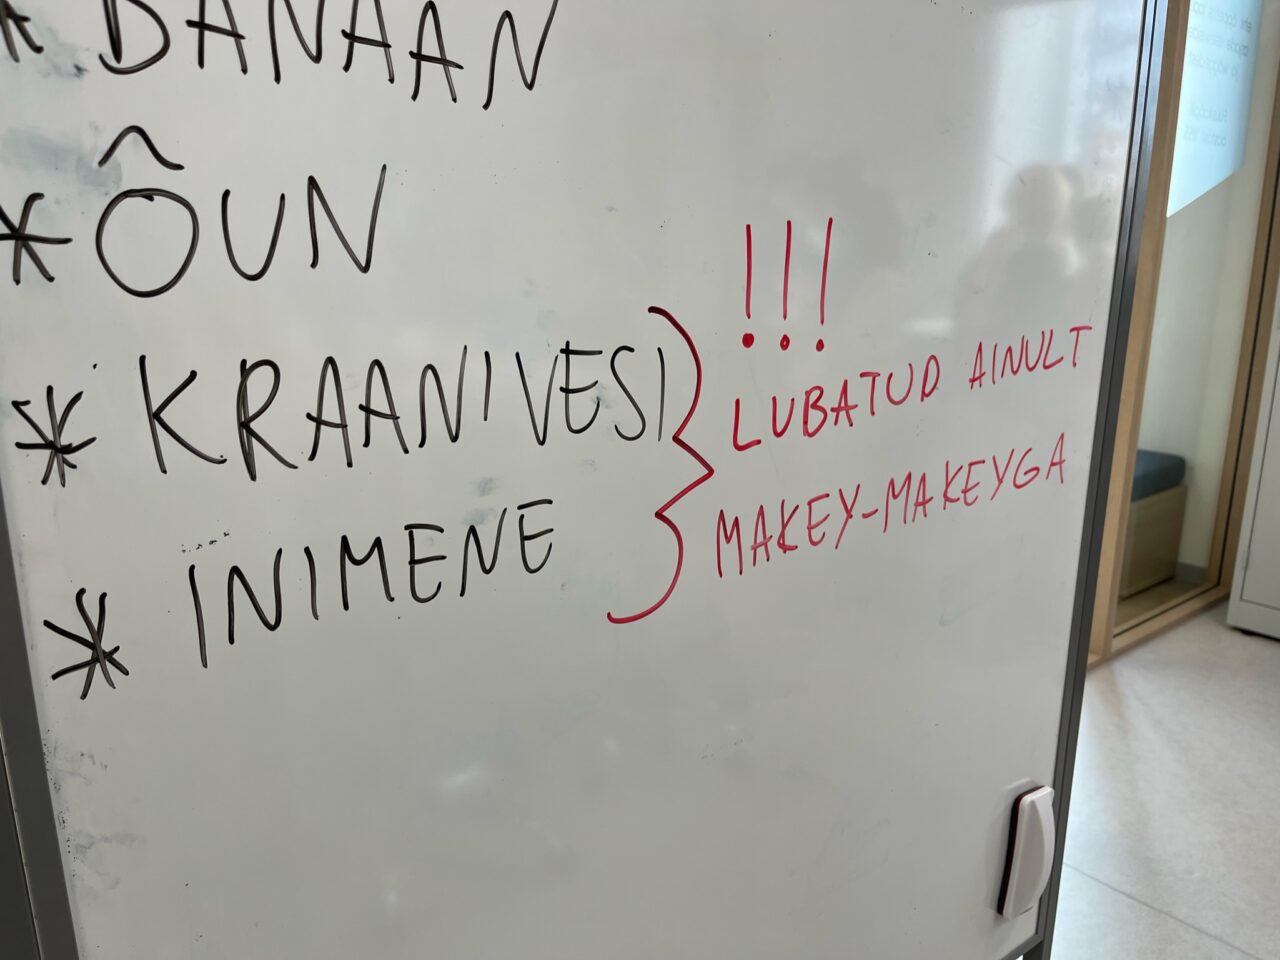 * BANAAN
* ÔUN
* KRAANIVESI
* INIMENE
!!!
LUBATUD AINULT
MAKEY-MAKEYGA